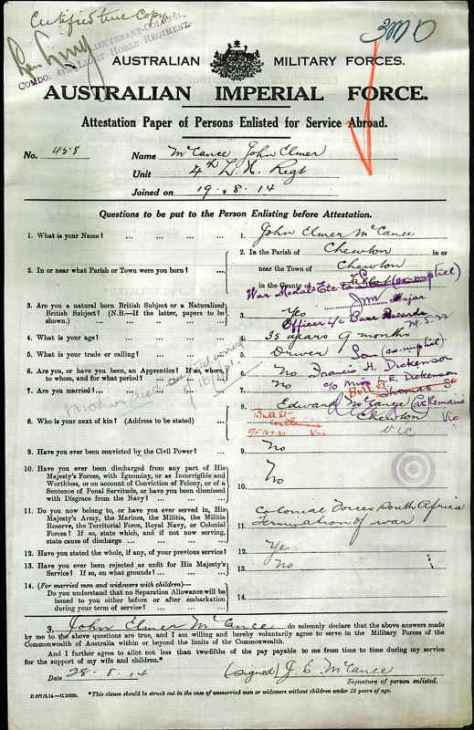 Certified true Copy
LIEUTENANT-COLONEL
COMDG. 4th LIGHT HORSE REGIMENT.
3MO
AUSTRALIAN MILITARY FORCES.
AUSTRALIAN IMPERIAL FORCE.
Attestation Paper of Persons Enlisted for Service Abroad.
No. 458 Name McCance John Elmer
Unit 4th L. H. Regt
Joined on 19.8.14
Questions to be put to the Person Enlisting before Attestation.
1. What is your Name? ... 1. John Elmer McCance
2. In or near what Parish or Town were you born? ... 2. In the Parish of Chewton in or
near the Town of Chewton
in the County of
War Medals Etc to Son (ex-nuptial)
Major
Officer i/c Base Records
3. Are you a natural born British Subject or a Naturalised
British Subject? (N.B.—If the latter, papers to be
shown.) 3. Yes
4. What is your age? ... 4. 35 years 9 months
5. What is your trade or calling? ... 5. Driver
Son (ex-nuptial)
6. Are you, or have you been, an Apprentice? If so, where,
to whom, and for what period? ... 6. No
Francis H. Dickenson
c/o Miss E. Dickenson
7. Are you married? ... 7. No
8. Who is your next of kin? (Address to be stated) 8. Edward McCance
Chewton
Vic
9. Have you ever been convicted by the Civil Power? ... 9. No
10. Have you ever been discharged from any part of His
Majesty's Forces, with Ignominy, or as Incorrigible and
Worthless, or on account of Conviction of Felony, or of a
Sentence of Penal Servitude, or have you been dismissed
with Disgrace from the Navy? ... 10. No
11. Do you now belong to, or have you ever served in, His
Majesty's Army, the Marines, the Militia, the Militia
Reserve, the Territorial Force, Royal Navy, or Colonial
Forces? If so, state which, and if not now serving,
state cause of discharge ... 11. Colonial Forces South Africa
Termination of war
12. Have you stated the whole, if any, of your previous service? 12. Yes
13. Have you ever been rejected as unfit for His Majesty's
Service? If so, on what grounds? ... 13. No
14. (For married men and widowers with children)—
Do you understand that no Separation Allowance will be
issued to you either before or after embarkation
during your term of service? 14.
I, John Elmer McCance do solemnly declare that the above answers made
by me to the above questions are true, and I am willing and hereby voluntarily agree to serve in the Military Forces of the
Commonwealth of Australia within or beyond the limits of the Commonwealth.
And I further agree to allot not less than two-fifths of the pay payable to me from time to time during my service
for the support of my wife and children.*
Date 28.8.14 (signed) J. E. McCance
Signature of person enlisted.
*This clause should be struck out in the case of unmarried men or widowers without children under 18 years of age.